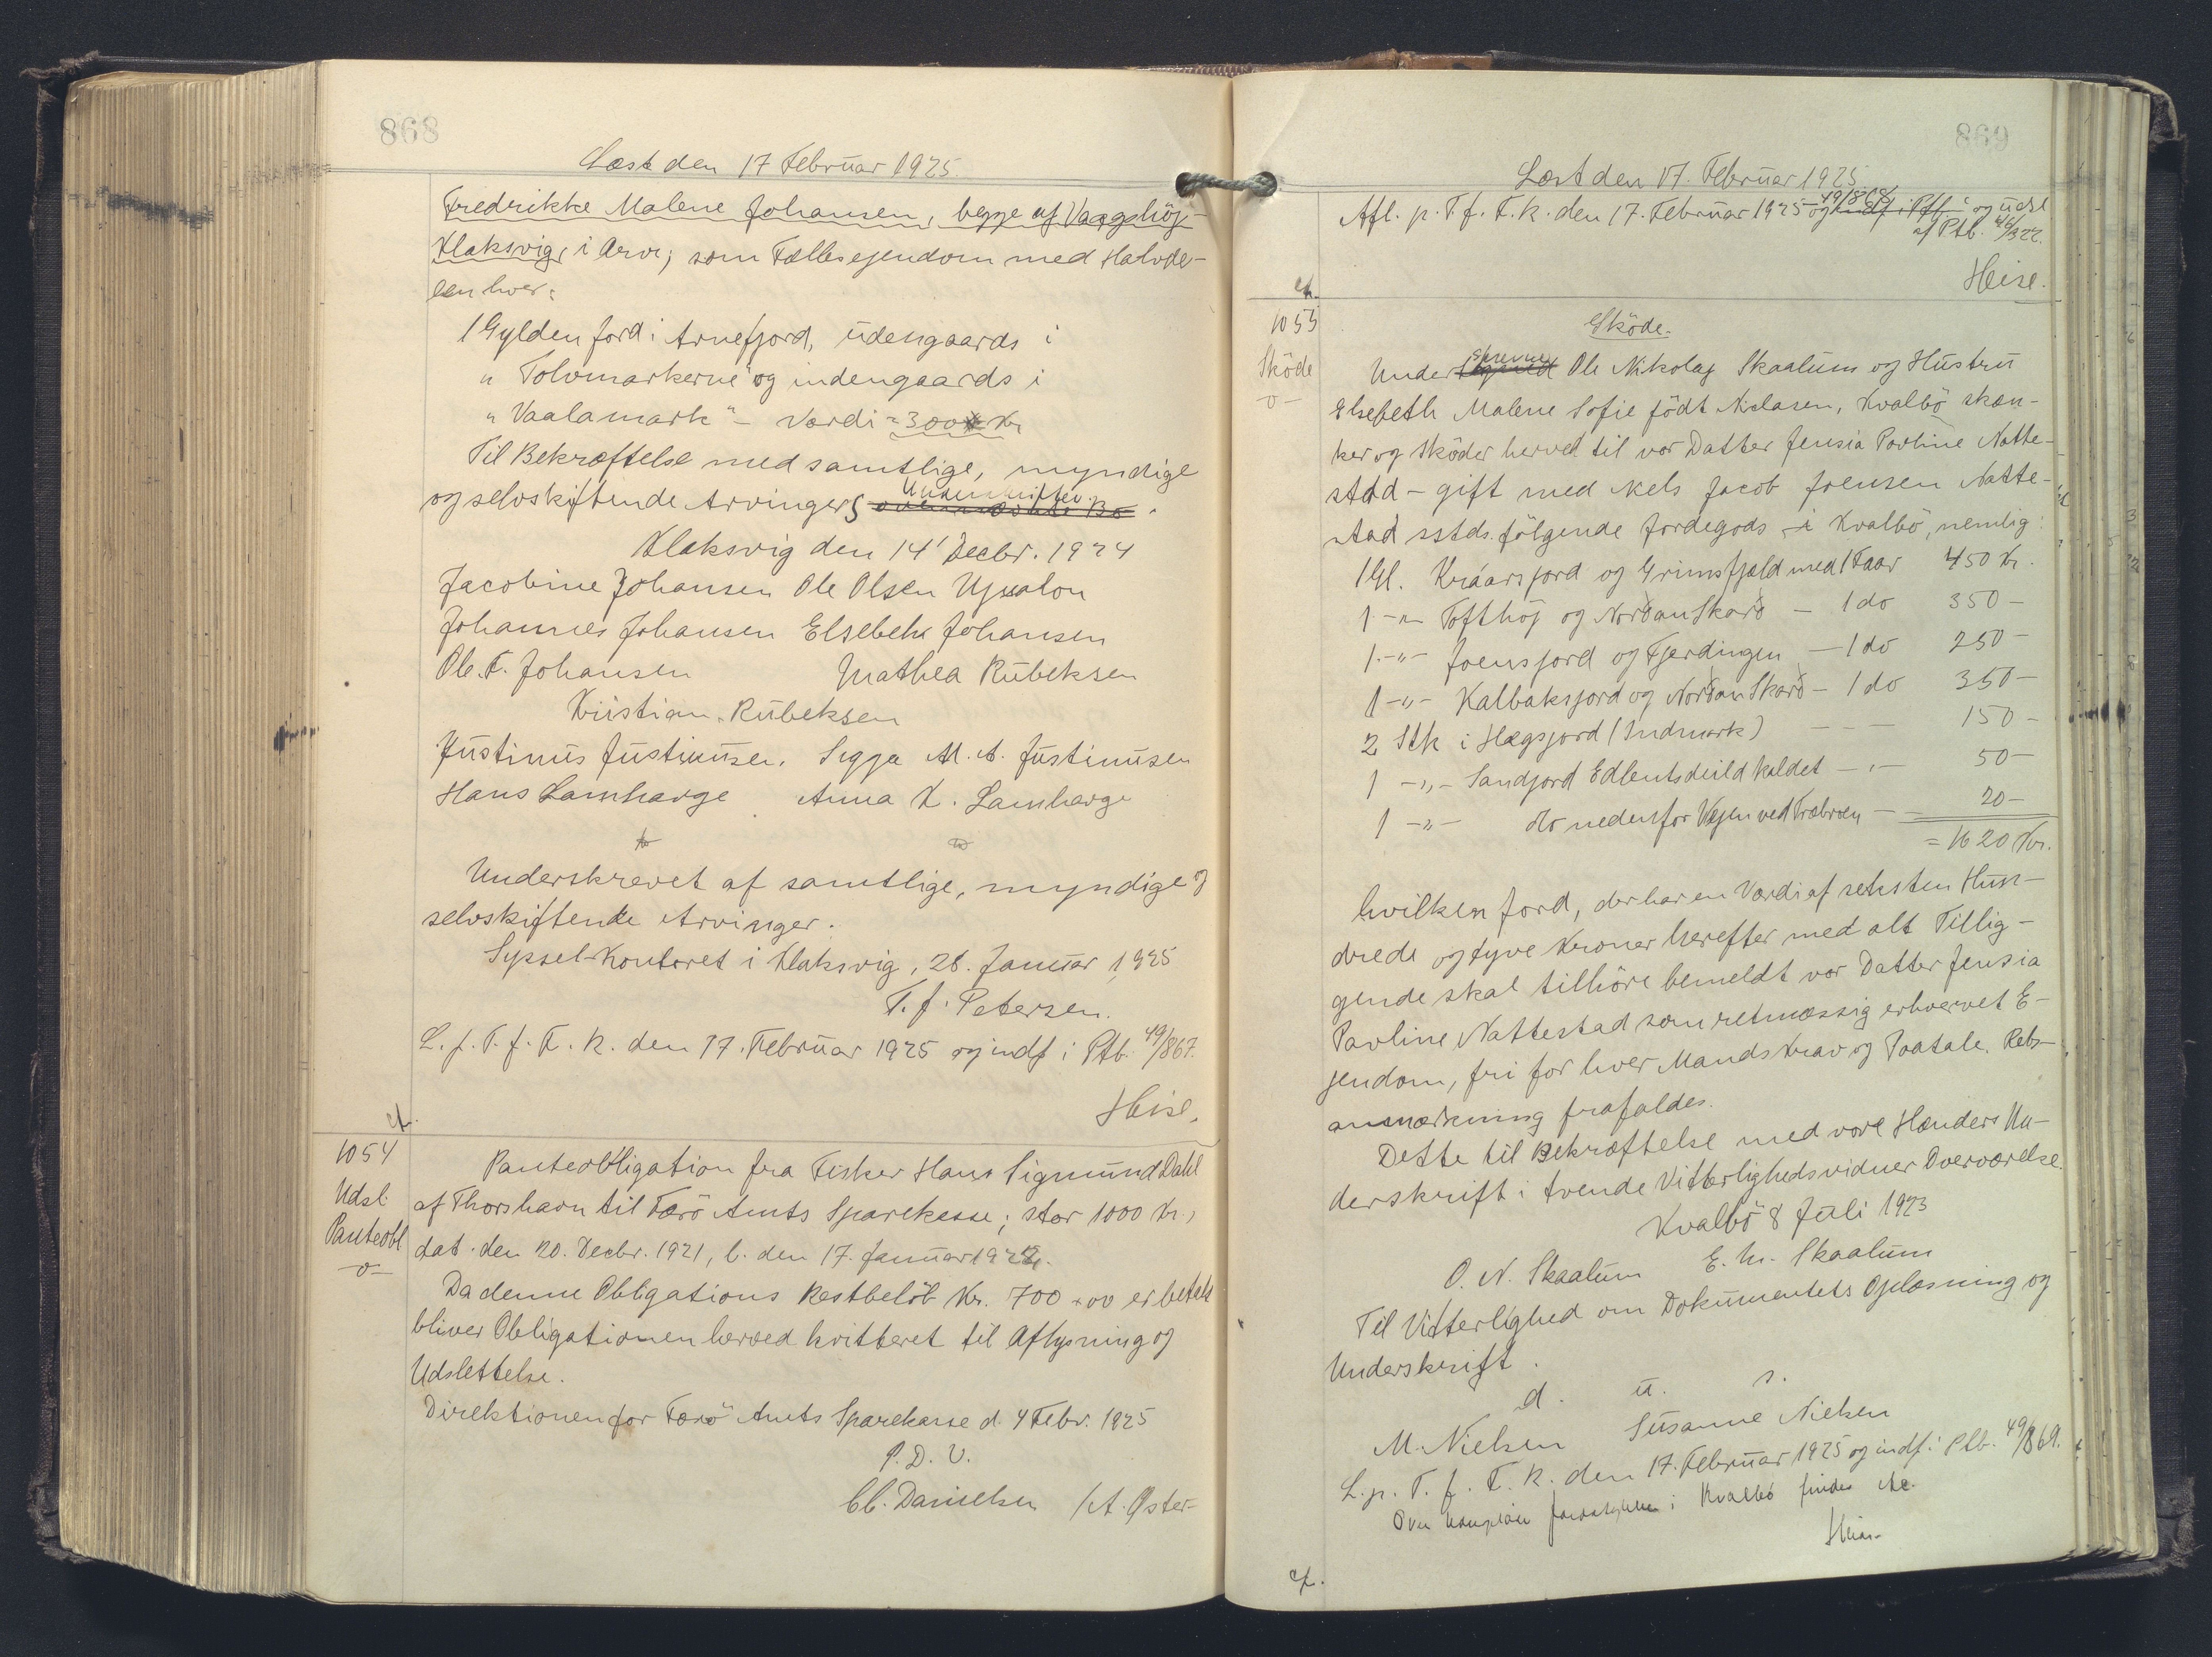 868
Læst den 17 Februar 1925.
Fredrikke Malene Johansen, begge af Vaagshøj-
Klaksvig, i Arv; som Fællesejendom med Halvde-
len hver:
1 Gylden Jord i Arnefjord, udengaards i
"Tolvmarkerne" og indengaards i
"Vaalamark" - Værdi = 300 Kr
Til Bekræftelse med samtlige, myndige
og selvskiftende Arvingers Underskrifter.
Klaksvig den 14' Decbr. 1924
Jacobine Johansen Ole Olsen
Johannes Johansen Elsebeth Johansen
Ole. F. Johansen Mathea Rubeksen
Kristian Rubeksen
Justinus Justinusen. Sigga M. A. Justinusen
Hans Lamhauge Anna K. Lamhauge
Underskrevet af samtlige, myndige og
selvskiftende Arvinger.
Syssel-Kontoret i Klaksvig, 28. Januar 1925
T. J. Petersen.
L. p. T. f. F. K. den 17. Februar 1925 og indf i Ptb. 49/867.
Heise.
1054
Udsl.
Panteobl
-o-
Panteobligation fra Fisker Hans Sigmund Dahl
af Thorshavn til Færö Amts Sparekasse; stor 1000 Kr.,
dat. den 20. Decbr. 1921, l. den 17. Januar 1922.
Da denne Obligations Restbelöb Kr. 700 + 00 er betalt
bliver Obligationen herved kvitteret til Aflysning og
Udslettelse.
Direktionen for Færö Amts Sparekasse d. 4 Febr. 1925
P. D. V.
Chr. Danielsen /A. Øster-
869
Læst den 17. Februar 1925.
Afl. p. T. f. F. K. den 17. Februar 1925 og indf i Ptb. 49/868 og udsl
af Ptb. 46/322.
Heise.
1055
Sköde
-o-
Sköde.
Underskrevne Ole Nikolaj Skaalum og Hustru
Elsebeth Malene Sofie födt Niclasen, Kvalbö skæn-
ker og sköder herved til vor Datter Jensia Povline Natte-
stad - gift med Niels Jacob Joensen Natte-
stad sstds. fölgende Jordegods i Kvalbö, nemlig:
1 Gl. Kráarsjord og Grimsfjæld med 1 Faar 450 Kr.
1 -"- Tofthöj og Norðan Skarð - 1 do 350 -
1 -"- Joensjord og Fjerdingen - 1 do 250 -
1 -"- Kalbaksjord og Norðan Skarð - 1 do 350 -
2 Stk i Hægsjord (Indmark) - - 150 -
1 -"- Sandjord kaldet -"- 50 -
1 -"- do nedenfor Vejen ved Træbroen - 20 -
= 1620 Kr.
hvilken Jord, der har en Værdi af seksten Hun-
drede og tyve Kroner herefter med alt Tillig-
gende skal tilhöre bemeldt vor Datter Jensia
Povline Nattestad som retmæssig erhvervet E-
jendom, fri for hver Mands Krav og Paatale. Rets-
anmærkning frafaldes.
Dette til Bekræftelse med vore Hænders Un-
derskrift i tvende Vitterlighedsvidner Overværelse.
Kvalbö 8 Juli 1923
O. N. Skaalum E. M. Skaalum
Til Vitterlighed om Dokumentets Oplæsning og
Underskrift.
d. u. s.
M. Nielsen Susanne Nielsen
L. p. T. f. F. K. den 17. Februar 1925 og indf. i Ptb. 49/869.
i Kvalbö findes
Heise.